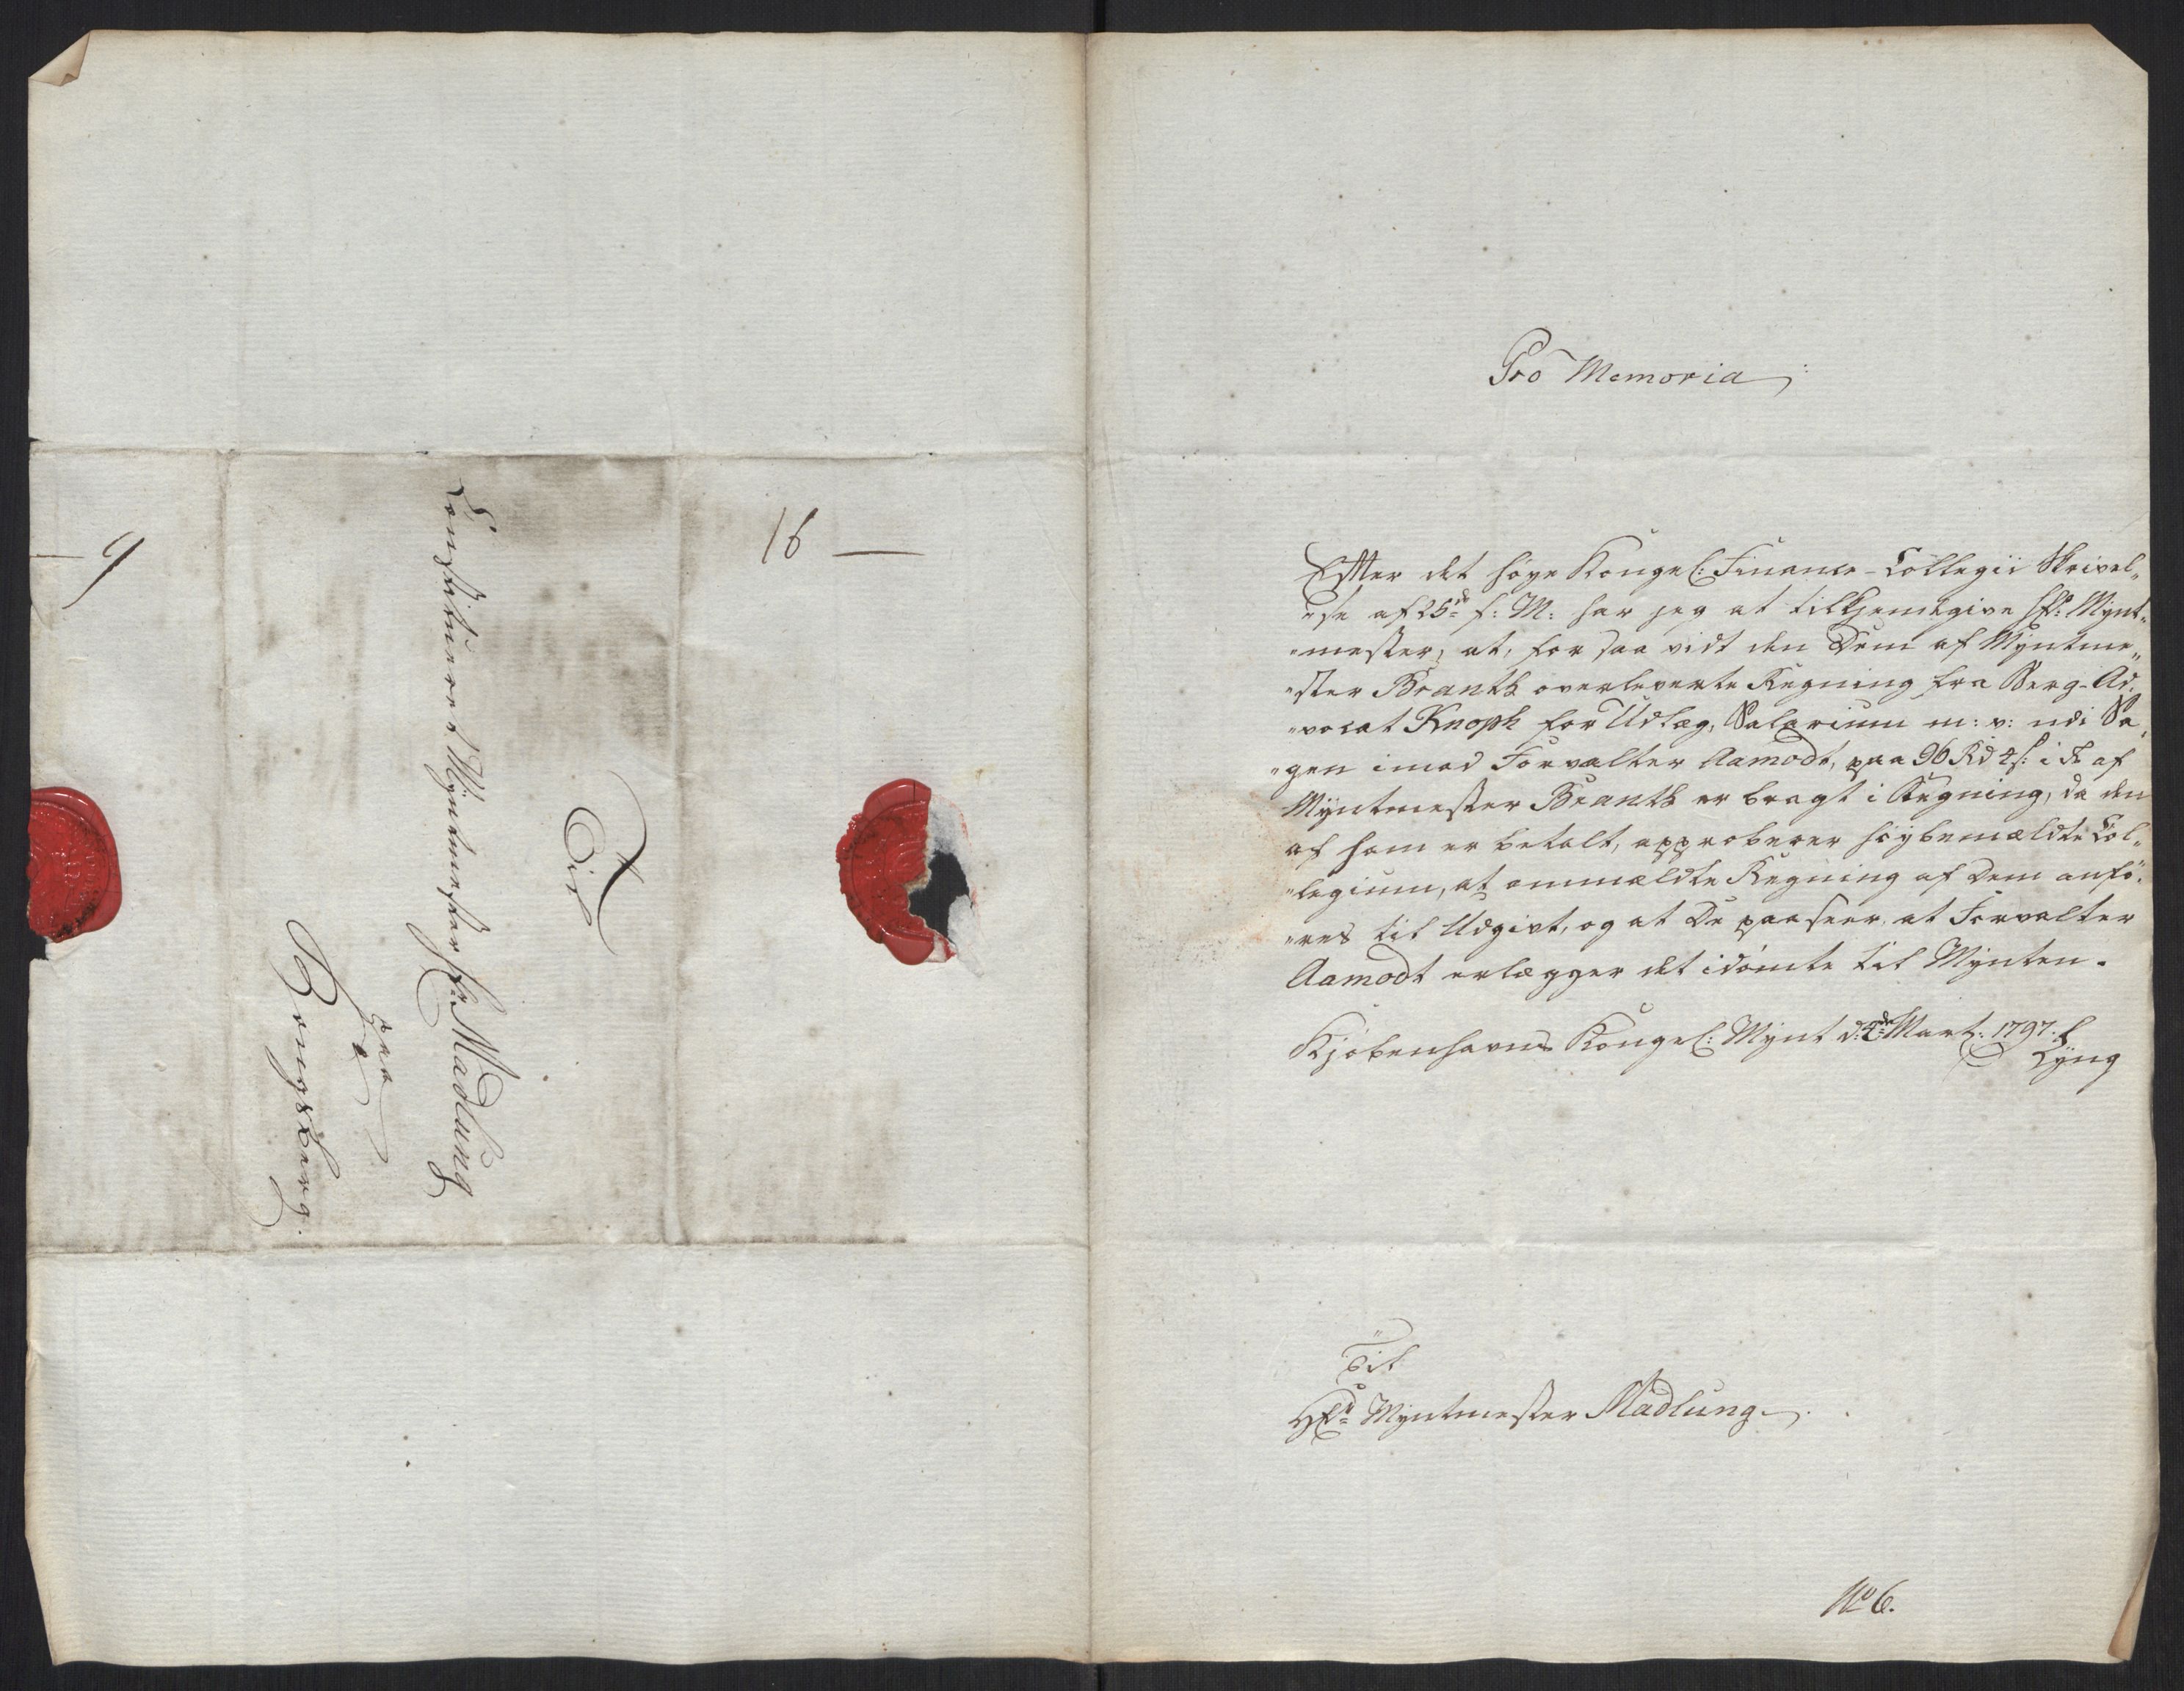 9
16 —
Til
Constitueret Myntmester Hr: Madlung
paa
Kongsberg.
Pro Memoria:
Efter det höye Kongel: Finance-Collegii Skrivel„
„se af 25de f: M: har jeg at tilkjendegive Hr: Mynt„
„mester, at, for saa vidt den Dem af Myntme„
„ster Branth overleverte Regning fra Berg-Ad„
„vocat Knoph for Udlæg, Salarium m: v: udi Sa„
„gen imod Forvalter Aamodt, paa 96 Rd 4 s: i K af
Myntmester Branth er bragt i Regning, da den
af ham er betalt, approberer höybemældte Col„
„legium, at ommældte Regning af Dem anfö„
„res til Udgivt, og at De paaseer at Forvalter
Aamodt erlægger det idömte til Mynten.
Kjöbenhavns Kongel: Mynt d: 4de Mart: 1797.
Lyng
Til
Hr: Myntmester Madlung
No 6.